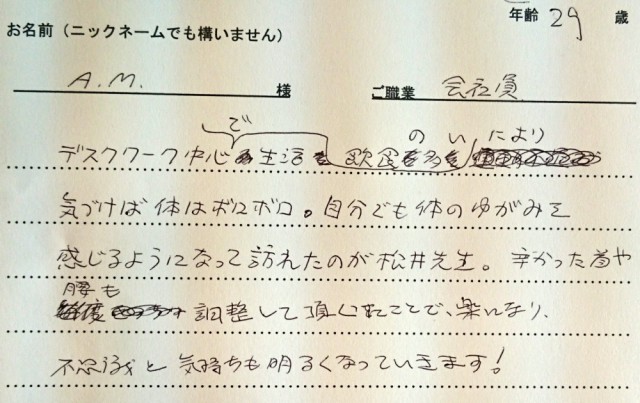 年齢 29 歳
お名前（ニックネームでも構いません）
A.M. 様 ご職業 会社員
デスクワーク中心で生活 飲食の多いにより
気づけば体はボロボロ。自分でも体のゆがみを
感じるようになって訪れたのが松井先生。辛かった首や
腰も 調整して頂くことで、楽になり、
不思議と気持ちも明るくなっていきます！